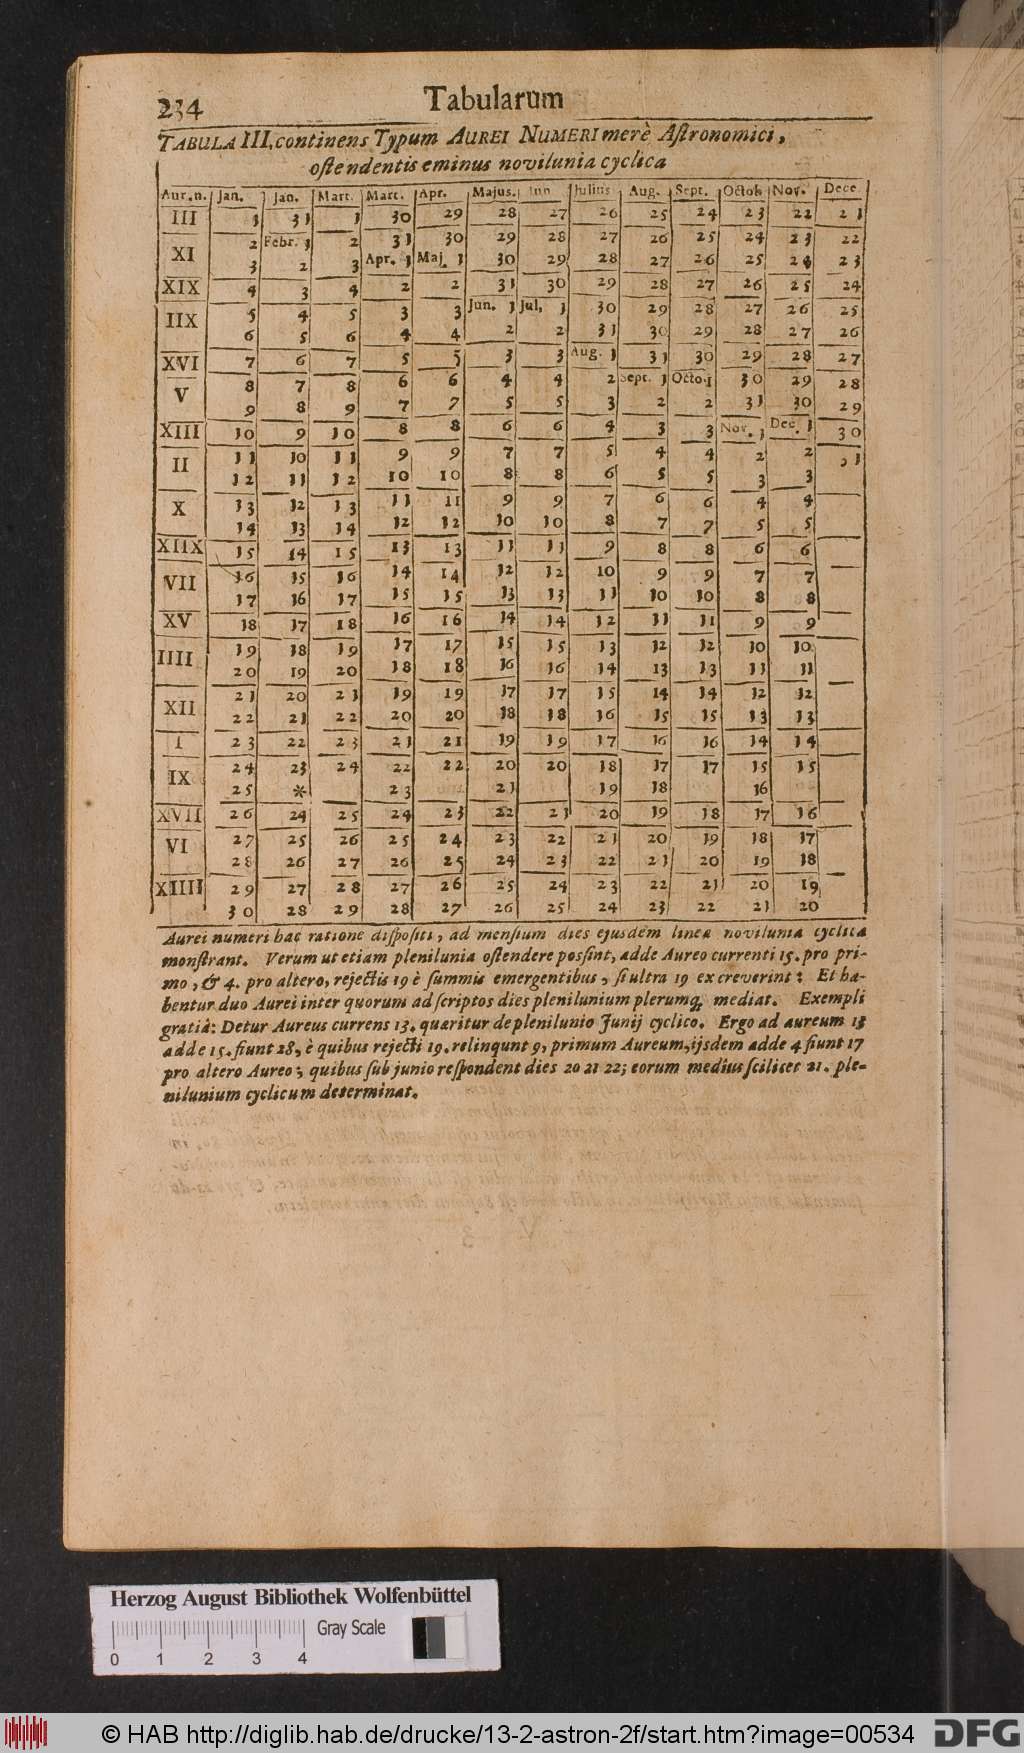 234 Tabularum
TABULA III, continens Typum AUREI NUMERI merè Astronomici,
ostendentis eminus novilunia cyclica
Aur.n. Jan. Jan. Mart. Mart. Apr. Majus. Jun Julius Aug. Sept. Octob Nov. Dece
III 1 31 1 30 29 28 27 26 25 24 23 22 21
2 Febr. 1 2 31 30 29 28 27 26 25 24 23 22
XI
3 2 3 Apr. 1 Maj. 1 30 29 28 27 26 25 24 23
XIX 4 3 4 2 2 31 30 29 28 27 26 25 24
IIX 5 4 5 3 3 Jun. 1 Jul, 1 30 29 28 27 26 25
6 5 6 4 4 2 2 31 30 29 28 27 26
XVI 7 6 7 5 5 3 3 Aug. 1 31 30 29 28 27
V 8 7 8 6 6 4 4 2 Sept. 1 Octo 1 30 29 28
9 8 9 7 7 5 5 3 2 2 31 30 29
XIII 10 9 10 8 8 6 6 4 3 3 Nov. 1 Dec. 1 30
II 11 10 11 9 9 7 7 5 4 4 2 2 31
12 11 12 10 10 8 8 6 5 5 3 3
X 13 12 13 11 11 9 9 7 6 6 4 4
14 13 14 12 12 10 10 8 7 7 5 5
XIIX 15 14 15 13 13 11 11 9 8 8 6 6
VII 16 15 16 14 14 12 12 10 9 9 7 7
17 16 17 15 15 13 13 11 10 10 8 8
XV 18 17 18 16 16 14 14 12 11 11 9 9
IIII 19 18 19 17 17 15 15 13 12 12 10 10
20 19 20 18 18 16 16 14 13 13 11 11
XII 21 20 21 19 19 17 17 15 14 14 12 12
22 21 22 20 20 18 18 16 15 15 13 13
I 23 22 23 21 21 19 19 17 16 16 14 14
IX 24 23 24 22 22 20 20 18 17 17 15 15
25 * 23 21 19 18 16
XVII 26 24 25 24 23 22 21 20 19 18 17 16
VI 27 25 26 25 24 23 22 21 20 19 18 17
28 26 27 26 25 24 23 22 21 20 19 18
XIIII 29 27 28 27 26 25 24 23 22 21 20 19
30 28 29 28 27 26 25 24 23 22 21 20
Aurei numeri hac ratione dispositi, ad mensium dies ejusdem linea novilunia cyclica
monstrant. Verum ut etiam plenilunia ostendere possint, adde Aureo currenti 15. pro pri-
mo, & 4. pro altero, rejectis 19 è summis emergentibus, si ultra 19 excreverint: Et ha-
bentur duo Aurei inter quorum adscriptos dies plenilunium plerumq; mediat. Exempli
gratiâ: Detur Aureus currens 13. quæritur de plenilunio Junij cyclico. Ergo ad aureum 13
adde 15. fiunt 28, è quibus rejecti 19. relinqunt 9, primum Aureum, ijsdem adde 4 fiunt 17
pro altero Aureo; quibus sub junio respondent dies 20 21 22; eorum medius scilicet 21. ple-
nilunium cyclicum determinat.
Herzog August Bibliothek Wolfenbüttel
Gray Scale
0 1 2 3 4
© HAB http://diglib.hab.de/drucke/13-2-astron-2f/start.htm?image=00534 DFG